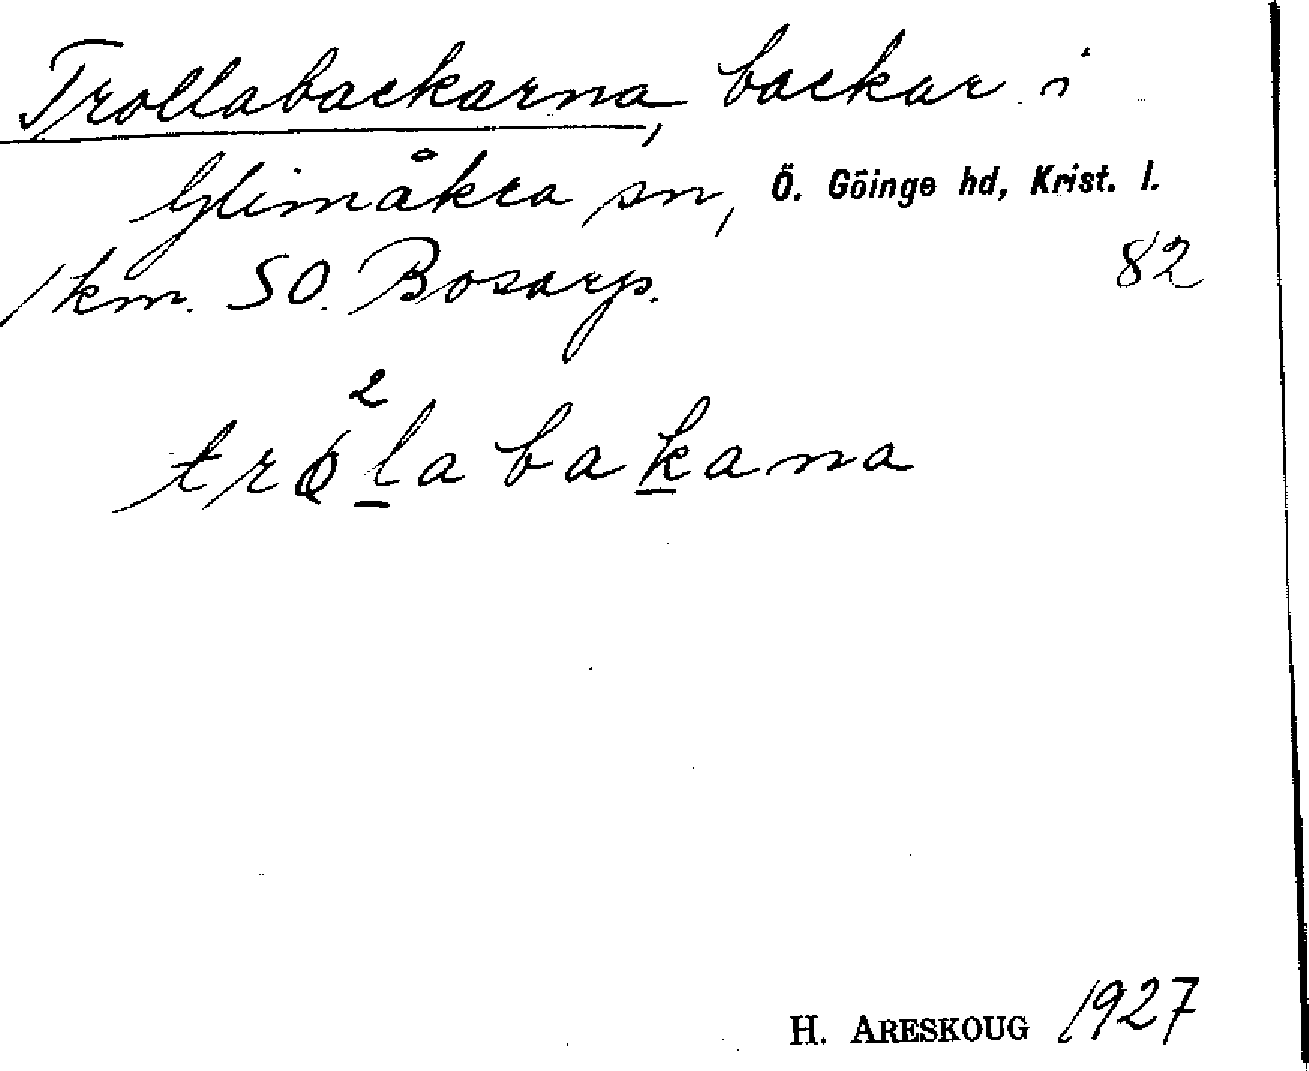 Trollabackarna, backar i
Glimåkra sn, Ö. Göinge hd, Krist. l.
1 km. SO. Bosarp. 82
trø²l̲abak̲ana
H. ARESKOUG 1927